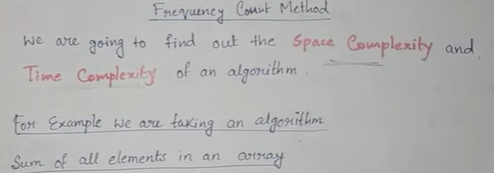 Frequency Count Method
We are going to find out the Space Complexity and
Time Complexity of an algorithm.
For Example we are taking an algorithm
Sum of all elements in an array